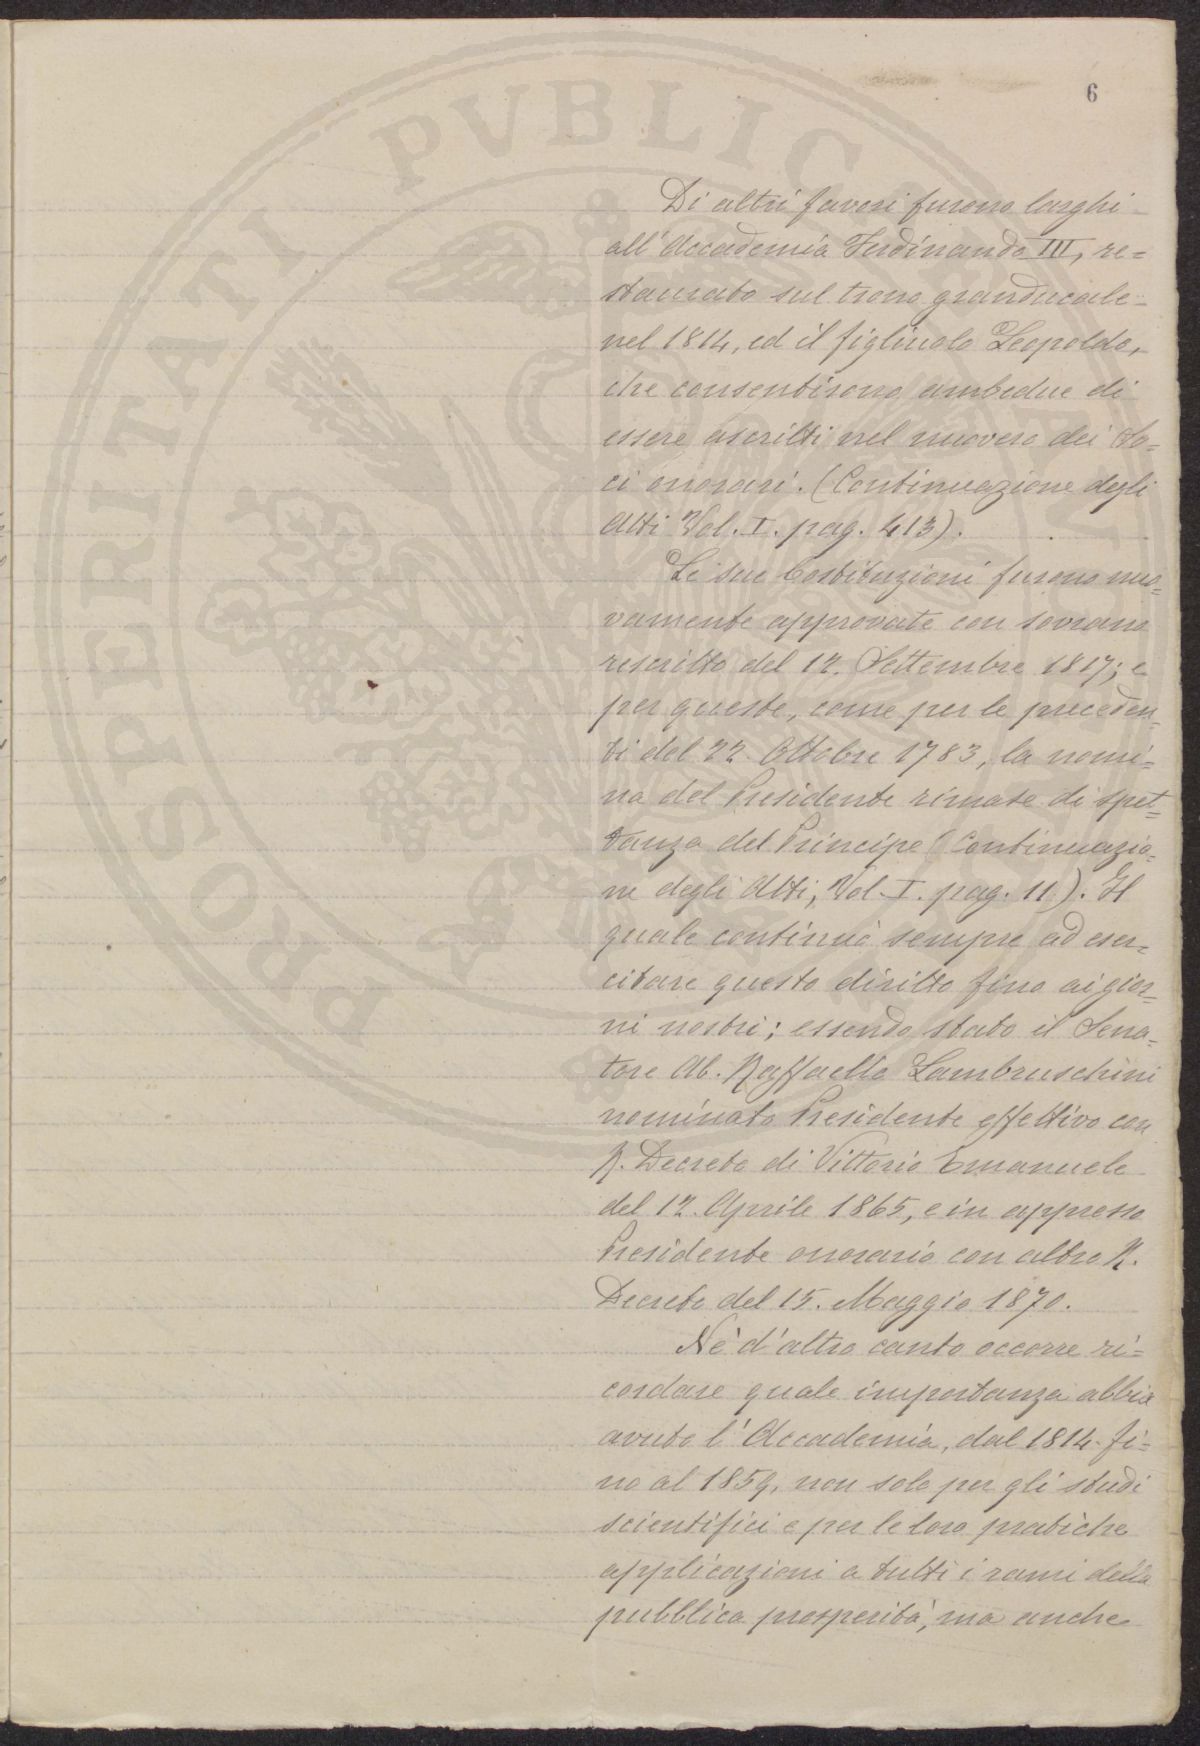 PROSPERITATI PVBLICAE
6
Di altri favori furono larghi
all'Accademia Ferdinando III, re=
staurato sul trono granducale
nel 1814, ed il figliuolo Leopoldo,
che consentirono ambedue di
essere ascritti nel novero dei So=
ci onorari. (Continuazione degli
Atti Vol. I. pag. 413).
Le sue Costituzioni furono nuo=
vamente approvate con sovrano
rescritto del 12. Settembre 1817; e
per queste, come per le preceden=
ti del 22. Ottobre 1783, la nomi=
na del Presidente rimase di spet=
tanza del Principe (Continuazio=
ne degli Atti, Vol. I. pag. 11). Il
quale continuò sempre ad eser=
citare questo diritto fino ai gior=
ni nostri; essendo stato il Sena=
tore Ab. Raffaello Lambruschini
nominato Presidente effettivo con
R. Decreto di Vittorio Emanuele
del 12. Aprile 1865, e in appresso
Presidente onorario con altro R.
Decreto del 15. Maggio 1870.
Nè d'altro canto occorre ri=
cordare quale importanza abbia
avuto l'Accademia, dal 1814. fi=
no al 1859, non solo per gli studi
scientifici e per le loro pratiche
applicazioni a tutti i rami della
pubblica prosperità, ma anche